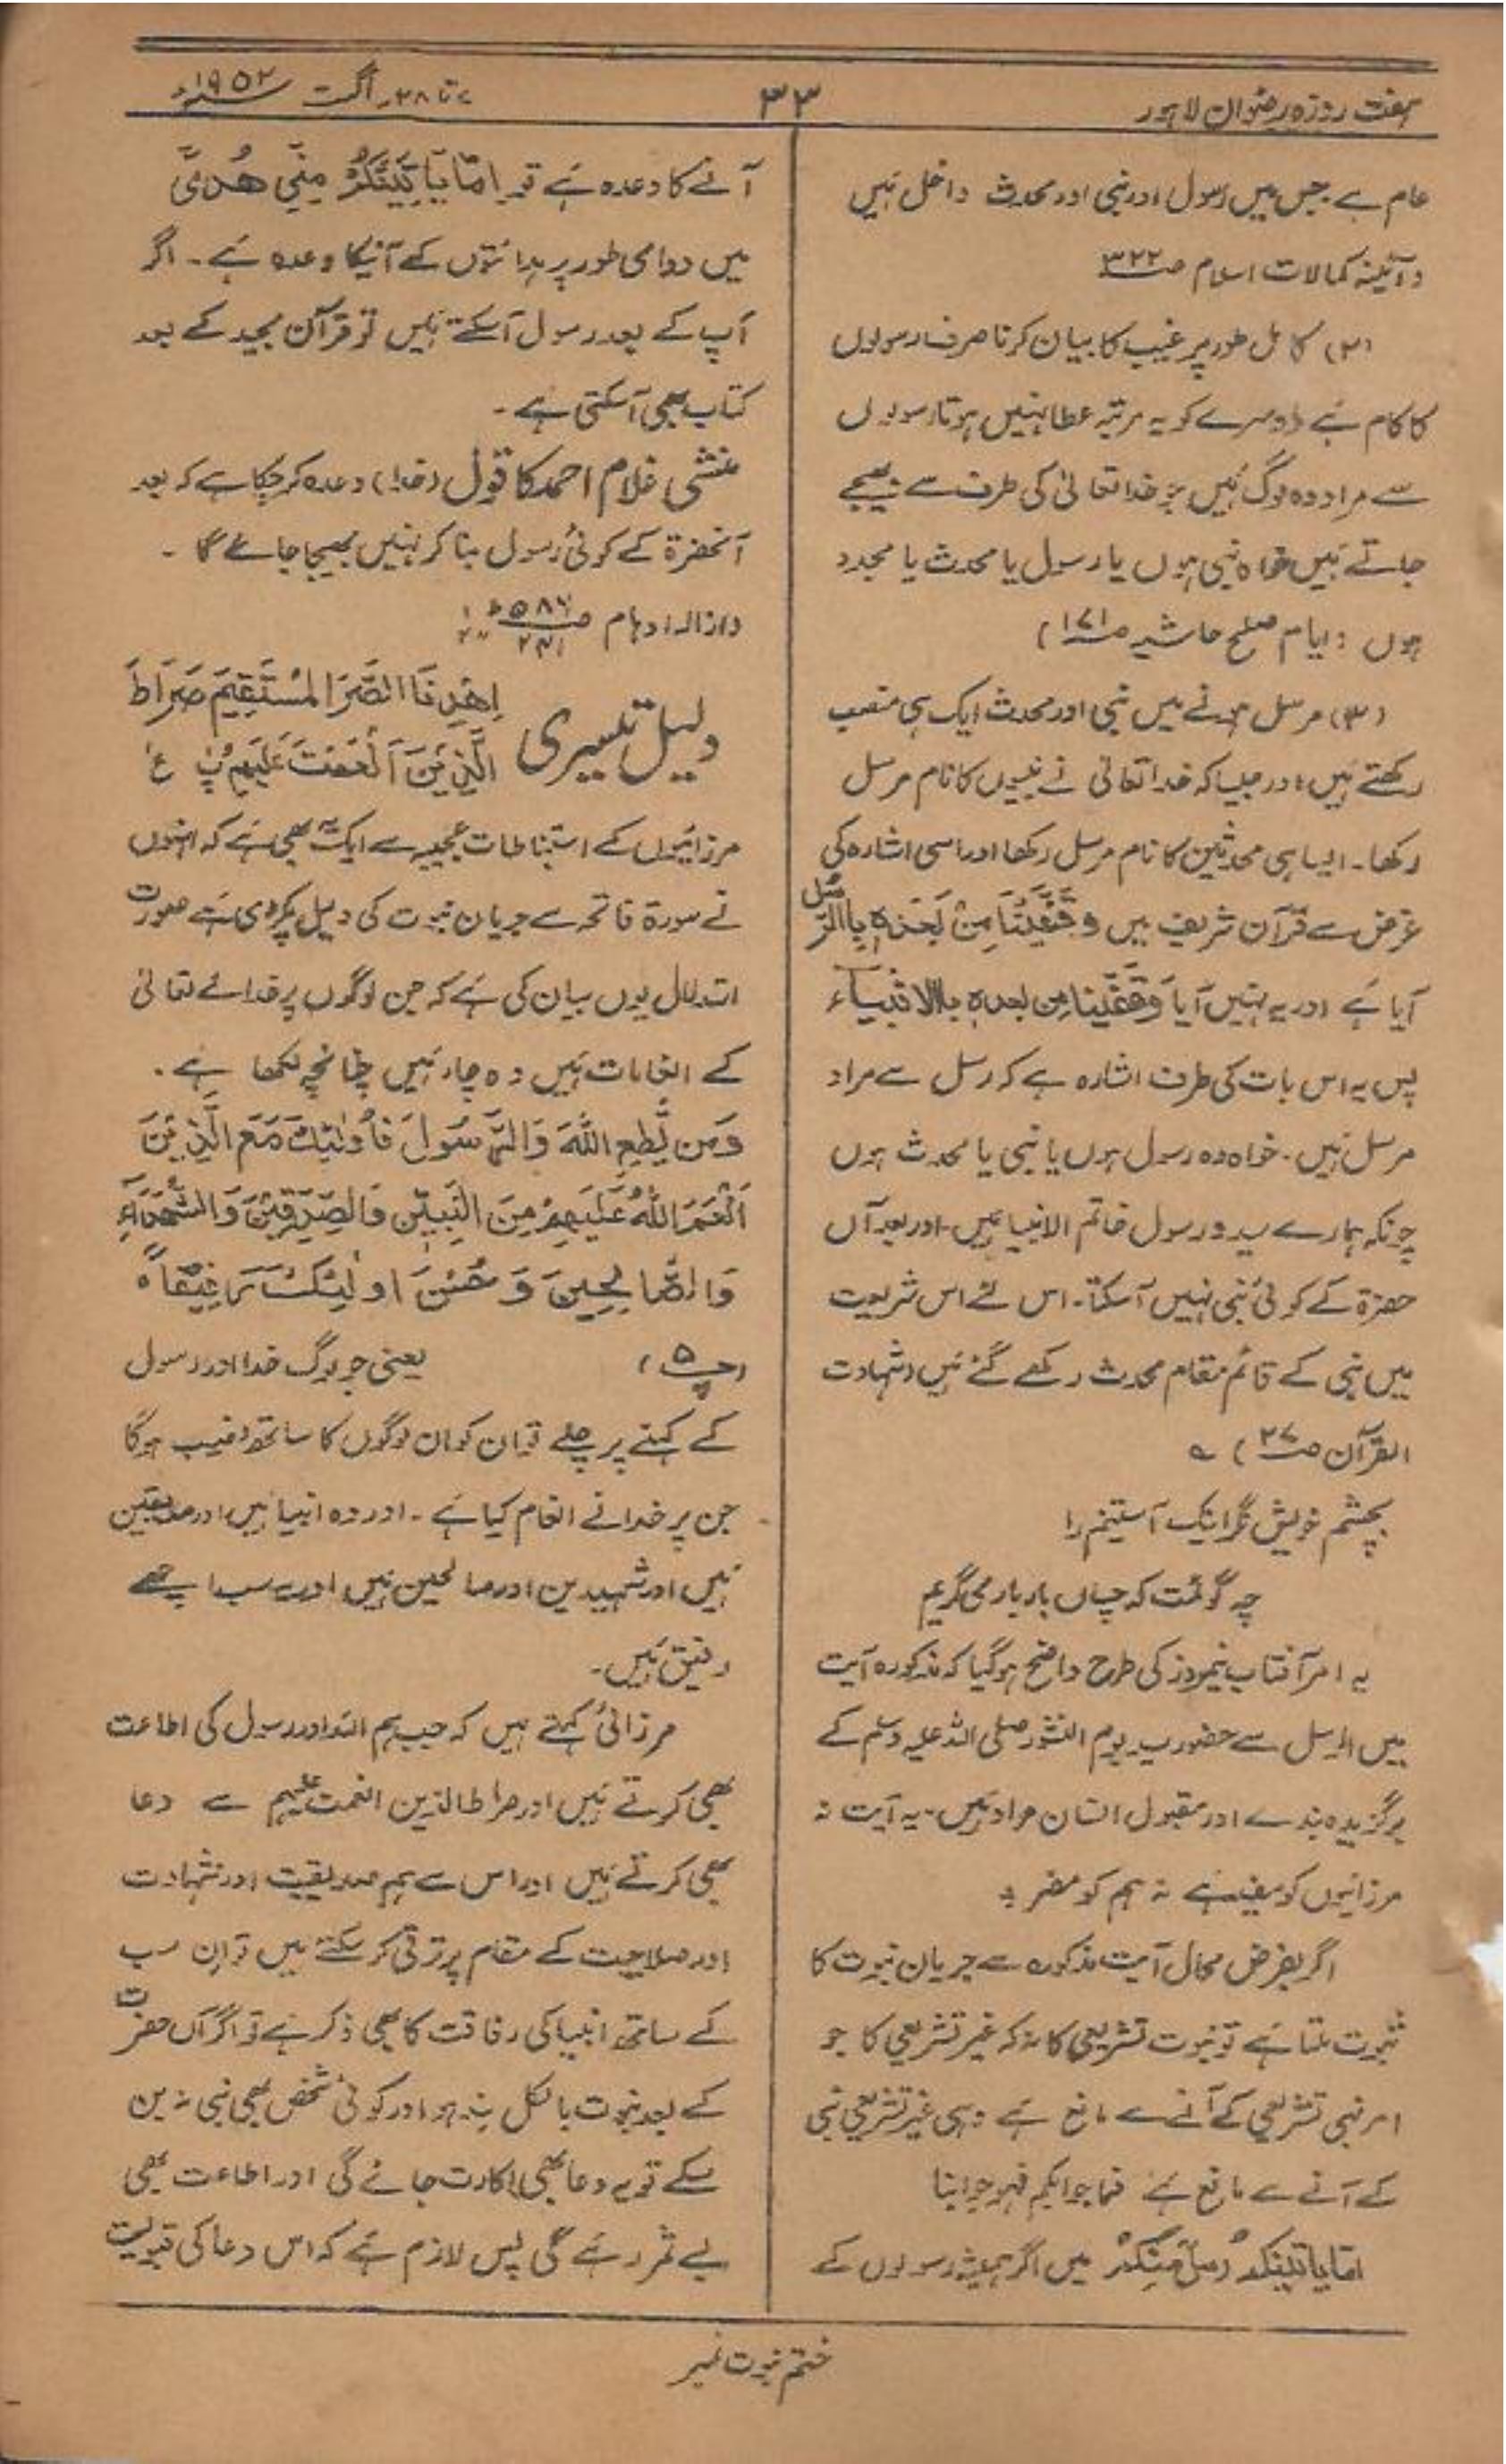 ہفت روزہ رضوان لاہور
۳۳
۷ تا ۲۸۔ اگست ۱۹۵۲ء
عام ہے جس میں رسول اور نبی اور محدث داخل ہیں
(آئینہ کمالات اسلام صـ ۳۲۲
(۲) کامل طور پر غیب کا بیان کرنا صرف رسولوں
کا کام ہے دوسرے کو یہ مرتبہ عطا نہیں ہوتا رسولوں
سے مراد وہ لوگ ہیں جو خدا تعالیٰ کی طرف سے بھیجے
جاتے ہیں خواہ نبی ہوں یا رسول یا محدث یا مجدد
ہوں (ایام صلح حاشیہ صـ ۱۷۱)
(۳) مرسل ہونے میں نبی اور محدث ایک ہی منصب
رکھتے ہیں اور جیسا کہ خدا تعالیٰ نے نبیوں کا نام مرسل
رکھا۔ ایسا ہی محدثین کا نام مرسل رکھا اور اسی اشارہ کی
غرض سے قرآن شریف میں وَقَفَّيْنَا مِنْ بَعْدِهٖ بِالرُّسُل
آیا ہے اور یہ نہیں آیا وَقَفَّيْنَا من بعدہ بالانبیاء
پس یہ اس بات کی طرف اشارہ ہے کہ رسل سے مراد
مرسل ہیں۔ خواہ وہ رسول ہوں یا نبی یا محدث ہوں
چونکہ ہمارے سید و رسول خاتم الانبیا ہیں۔ اور بعد آں
حضرۃ کے کوئی نبی نہیں آسکتا۔ اس لئے اس شریعت
میں نبی کے قائم مقام محدث رکھے گئے ہیں (شہادت
القرآن صـ ۲۷) ؎
بچشم خویش نگر اینک آستینم را
چہ گوئمت کہ چساں بار بار می گریم
یہ امر آفتاب نیمروز کی طرح واضح ہوگیا کہ مذکورہ آیت
میں الرسل سے حضور یوم النشور صلی اللہ علیہ وسلم کے
برگزیدہ بندے اور مقبول انسان مراد ہیں۔ یہ آیت نہ
مرزائیوں کو مفید ہے نہ ہم کو مضر ہے
اگر بفرض محال آیت مذکورہ سے جریان نبوت کا
ثبوت ملتا ہے تو نبوت تشریعی کا نہ کہ غیر تشریعی کا جو
امر نبی تشریعی کے آنے سے مانع ہے وہی غیر تشریعی نبی
کے آنے سے مانع ہے فما جوابکم فہو جوابنا
اِمَّا يَاتِيَنَّكُمْ رُسُلٌ مِّنْكُمْ میں اگر ہمیشہ رسولوں کے
آنے کا وعدہ ہے تو اِمَّا يَاتِيَنَّكُمْ مِنِّي هُدًى
میں دوامی طور پر ہدایتوں کے آنیکا وعدہ ہے۔ اگر
آپ کے بعد رسول آسکتے ہیں تو قرآن مجید کے بعد
کتاب بھی آسکتی ہے۔
منشی غلام احمد کا قول (خدا) وعدہ کرچکا ہے کہ بعد
آنحضرۃ کے کوئی رسول بنا کر نہیں بھیجا جائے گا ۔
(ازالہ اوہام صـ ۵۸۶
دلیل تیسری اِهْدِنَا الصِّرَاطَ الْمُسْتَقِيمَ صِرَاطَ
الَّذِيْنَ اَنْعَمْتَ عَلَيْهِمْ پ ع
مرزائیوں کے استنباطات عجیبہ سے ایک یہ بھی ہے کہ انہوں
نے سورۃ فاتحہ سے جریان نبوت کی دلیل پکڑی ہے صورت
استدلال یوں بیان کی ہے کہ جن لوگوں پر خدائے تعالیٰ
کے انعامات ہیں وہ چار ہیں چنانچہ لکھا ہے.
وَمَن يُّطِعِ اللّٰهَ وَالرَّسُولَ فَأُولٰئِكَ مَعَ الَّذِيْنَ
اَنْعَمَ اللّٰهُ عَلَيْهِمْ مِنَ النَّبِيّٖنَ وَالصِّدِّيْقِيْنَ وَالشُّهَدَآءِ
وَالصَّالِحِيْنَ وَحَسُنَ اُولٰئِكَ رَفِيْقًا ہ
(پ ۵) یعنی جو لوگ خدا اور رسول
کے کہنے پر چلے تو ان کو ان لوگوں کا ساتھ نصیب ہوگا
جن پر خدا نے انعام کیا ہے ۔ اور وہ انبیا ہیں اور صدیقین
ہیں اور شہیدین اور صالحین ہیں اور یہ سب اچھے
رفیق ہیں۔
مرزائی کہتے ہیں کہ جب ہم اللہ اور رسول کی اطاعت
بھی کرتے ہیں اور صراط الذین انعمت علیہم سے دعا
بھی کرتے ہیں اور اس سے ہم صدیقیت اور شہادت
اور صلاحیت کے مقام پر ترقی کرسکتے ہیں تو ان سب
کے ساتھ انبیا کی رفاقت کا بھی ذکر ہے تو اگر آں حضرت
کے بعد نبوت بالکل بند ہو اور کوئی شخص بھی نبی نہ بن
سکے تو یہ دعا بھی اکارت جائے گی اور اطاعت بھی
بے ثمر رہے گی پس لازم ہے کہ اس دعا کی قبولیت
ختم نبوت نمبر